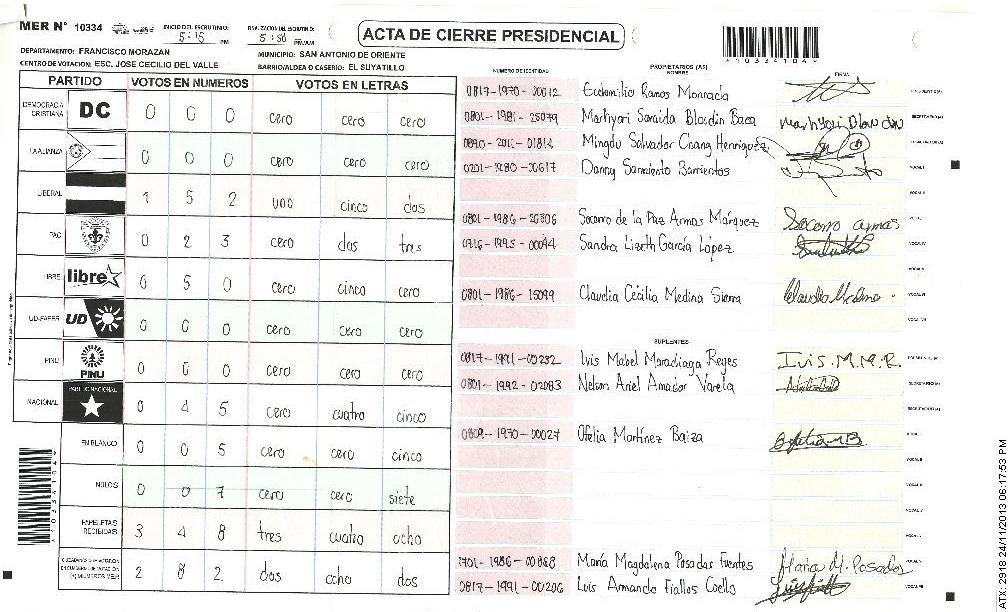 MER Nº 10334
INICIO DEL ESCRUTINIO: 5:15 PM
FINALIZACION DEL ESCRUTINIO: 5:50 PM/AM
ACTA DE CIERRE PRESIDENCIAL
DEPARTAMENTO: FRANCISCO MORAZAN
MUNICIPIO: SAN ANTONIO DE ORIENTE
CENTRO DE VOTACION: ESC. JOSE CECILIO DEL VALLE
BARRIO/ALDEA O CASERIO: EL SUYATILLO
PARTIDO VOTOS EN NUMEROS VOTOS EN LETRAS
DEMOCRACIA CRISTIANA DC 0 0 0 cero cero cero
LA ALIANZA 0 0 0 cero cero cero
LIBERAL 1 5 2 uno cinco dos
PAC 0 2 3 cero dos tres
LIBRE libre 0 5 0 cero cinco cero
UD-FAPER UD 0 0 0 cero cero cero
PINU PINU 0 0 0 cero cero cero
NACIONAL PARTIDO NACIONAL 0 4 5 cero cuatro cinco
EN BLANCO 0 0 5 cero cero cinco
NULOS 0 0 7 cero cero siete
PAPELETAS RECIBIDAS 3 4 8 tres cuatro ocho
2 8 2 dos ocho dos
NUMERO DE IDENTIDAD PROPIETARIOS (AS) NOMBRE FIRMA
0817-1970-00012 Ramos
0801-1981-25079 Saraida
Mingdu Salvador Chang Henriquez
Danny Sarmiento Barrientos
Socorro de la Paz Armas Márquez Socorro armas
Sandra Lizeth García López
0801-1986-15099 Claudia Cecilia Medina Sierra
SUPLENTES
0817-1991-00282 Ivis Mabel Maradiaga Reyes Ivis.M.M.R.
0801-1992-02083 Nelson Ariel Amador Varela
-1970-00027 Ofelia Martínez Baiza
María Magdalena Posadas Fuentes María M. Posadas
0817-1991-00206 Luis Armando Fiallos Coello
ATX-2918 24/11/2013 06:17:53 PM